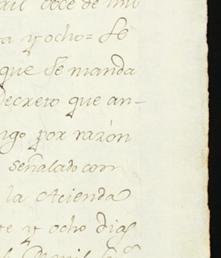 ail doce de mil
ta y ocho= Se
que Se manda
decreto que an-
igo por razón
señalado con
la Acienda
te y ocho dias